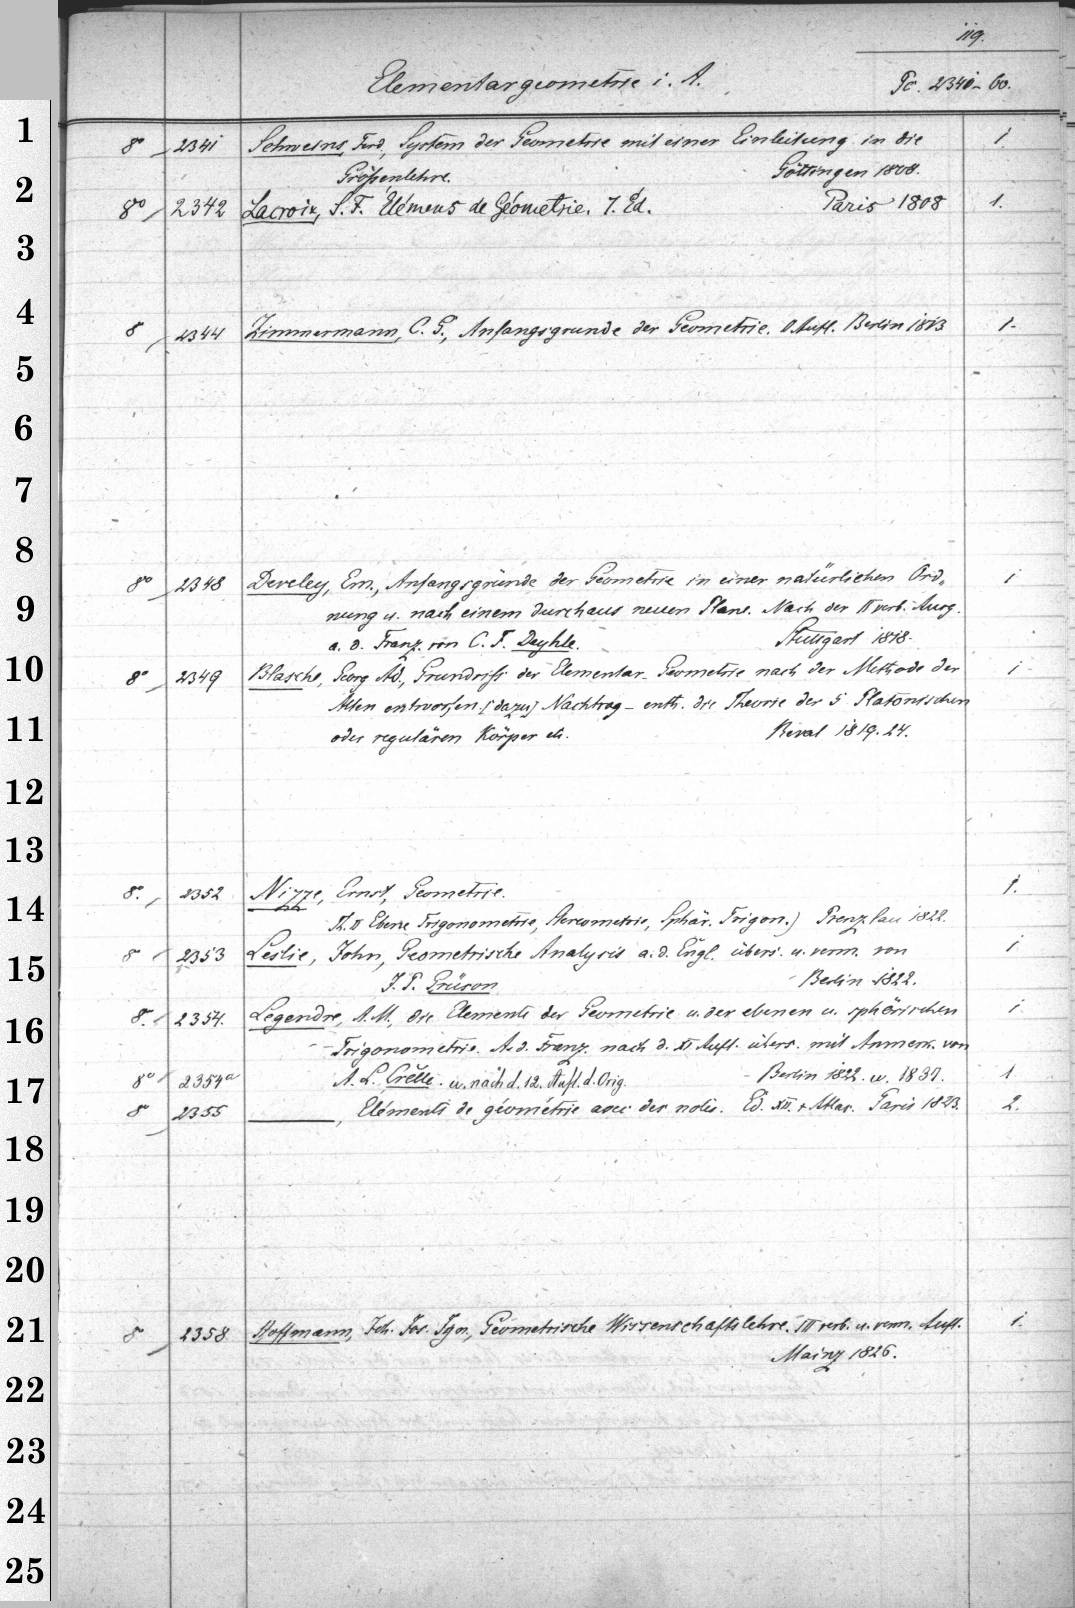 119.
Elementargeometrie i. A. Pc. 2341-60.
1
8° 2341 Schweins, Ferd., System der Geometrie mit einer Einleitung in die 1.
Größenlehre. Göttingen 1808.
2
8° 2342 Lacroix, S. F. Elémens de Géometrie. 7. Ed. Paris 1808 1.
3
4
8 2344 Zimmermann, C. G., Anfangsgrunde der Geometrie. Aufl. Berlin 1813 1.
5
6
7
8
8° 2348 Develey, Em., Anfangsgründe der Geometrie in einer natürlichen Ord- 1
9
nung u. nach einem durchaus neuen Plane. Nach der II verb. Ausg.
a. d. Franz. von C. F. Deyhle. Stuttgart 1818.
10
8° 2349 Blasche, Georg Ad., Grundriß der Elementar-Geometrie nach der Methode der 1
Alten entworfen. [dazu] Nachtrag - enth. die Theorie der 5 Platonischen
11
oder regulären Körper etc. Reval 1819. 24.
12
13
8°. 2352 Nizze, Ernst, Geometrie. 1.
14
Th. II Ebene Trigonometrie, Stereometrie, Sphär. Trigon.) Prenzlau 1822.
8 2353 Leslie, John, Geometrische Analysis a. d. Engl. übers. u. verm. von 1
15
J. P. Grüson. Berlin 1822.
8. 2354. Legendre, A. M., die Elemente der Geometrie u. der ebenen u. sphärischen 1
16
Trigonometrie. A. d. Franz. nach d. XI Aufl. übers. mit Anmerk. von
17
8° 2354a A. L. Crelle. u. nach d. 12. Aufl. d. Orig. Berlin 1822. u. 1837. 1
8 2355 ———, Eléments de géométrie avec des notes. Ed. XII. + Atlas. Paris 1823. 2.
18
19
20
21
8 2358 Hoffmann, Joh. Jos. Ign., Geometrische Wissenschaftslehre. III verb. u. verm. Aufl. 1.
Mainz 1826.
22
23
24
25